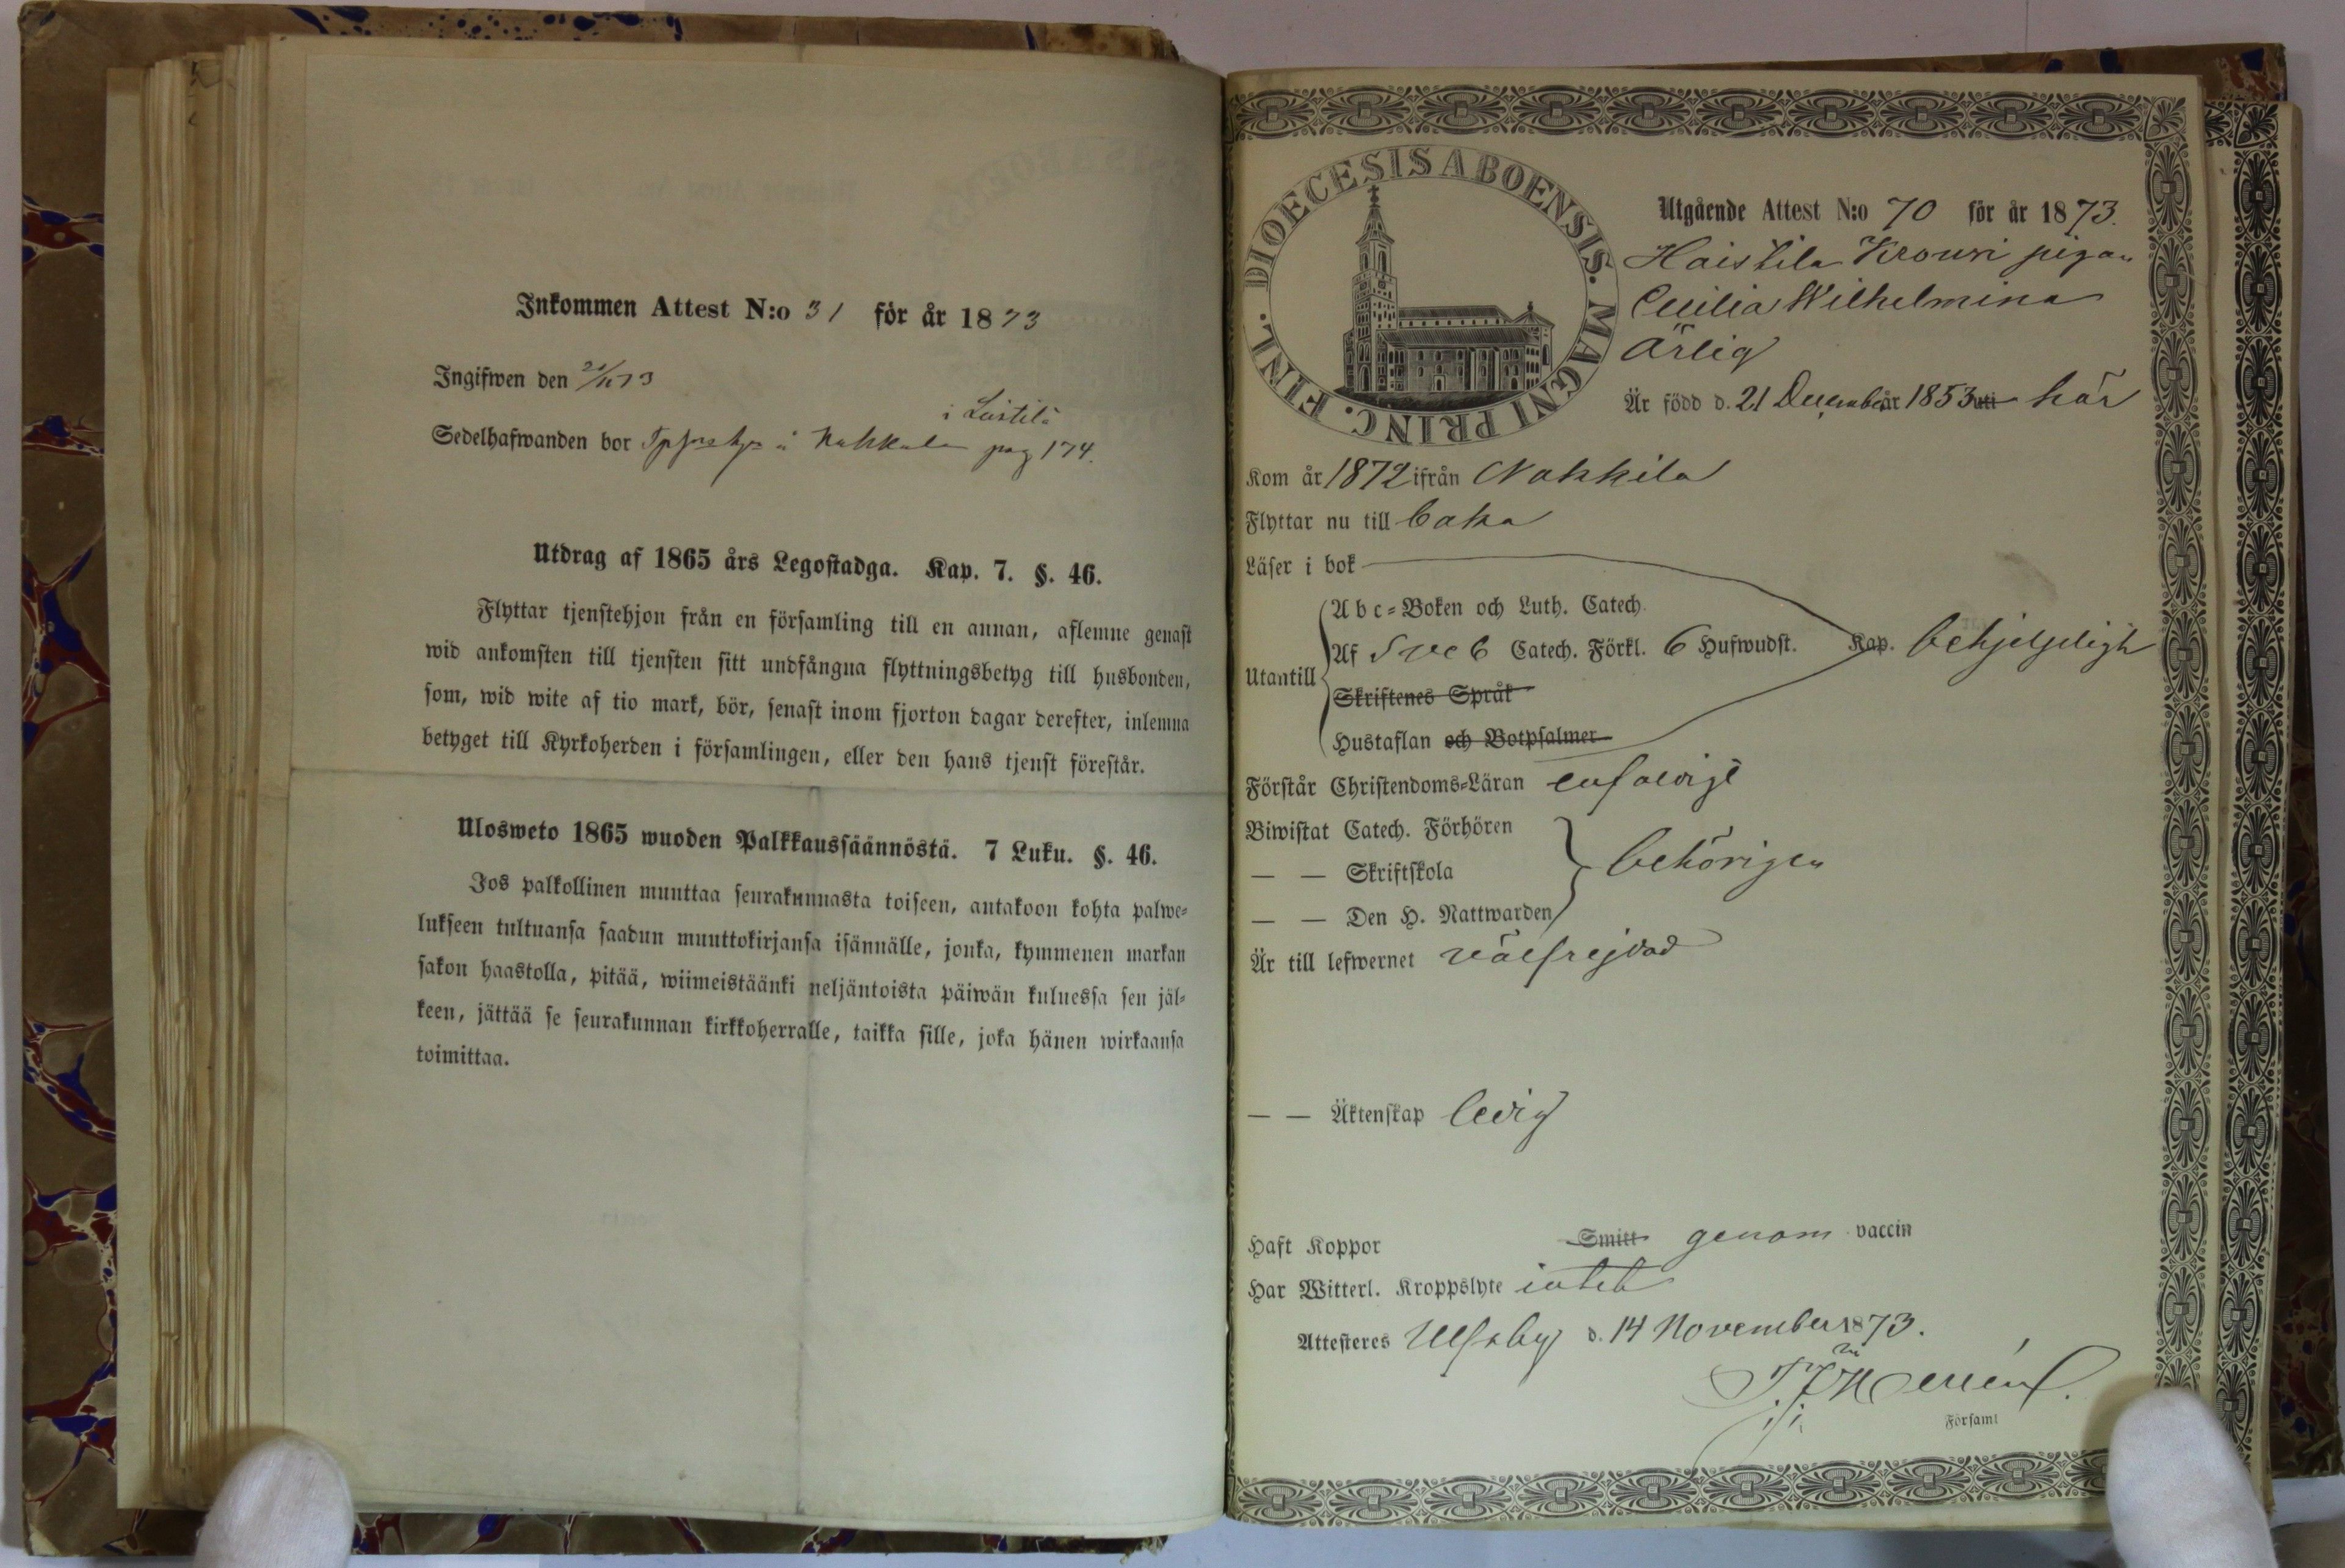 Inkommen Attest N:o 31 för år 1873
Ingifwen den
i Leistilä
Sedelhafwanden bor å pag 174.
Utdrag af 1865 års Legostadga. Kap. 7. §. 46.
Flyttar tjenstehjon från en församling till en annan, aflemne genast
wid ankomsten till tjensten sitt undfångna flyttningsbetyg till husbonden,
som, wid wite af tio mark, bör, senast inom fjorton dagar derefter, inlemna
betyget till Kyrkoherden i församlingen, eller den hans tjenst förestår.
Ulosweto 1865 wuoden Palkkaussäännöstä. 7 Luku. §. 46.
Jos palkollinen muuttaa seurakunnasta toiseen, antakoon kohta palwe-
lukseen tultuansa saadun muuttokirjansa isännälle, jonka, kymmenen markan
sakon haastolla, pitää, wiimeistäänki neljäntoista päiwän kuluessa sen jäl-
keen, jättää se seurakunnan kirkkoherralle, taikka sille, joka hänen wirkaansa
toimittaa.
DIOECESIS ABOENSIS. MAGNI PRINC. FINL.
Utgående Attest N:o 70 för år 1873.
Haistila Krouvi pigan
Cecilia Wilhelmina
Ärlig
Är född d. 21 December år 1853 uti här
Kom år 1872 ifrån Nakkila
Flyttar nu till baka
Läser i bok
Abc-Boken och Luth. Catech.
Utantill Af Sveb Catech. Förkl. 6 Hufwudst. Kap. behjelpligt
Skriftenes Språk
Hustaflan och Botpsalmer
Förstår Christendoms-Läran enfaldigt
Biwistat Catech. Förhören
— — Skriftskola behörigen
— — Den H. Nattwarden
Är till lefwernet välfrejdad
— — Äktenskap ledig
Haft Koppor Smitt genom vaccin
Har Witterl. Kroppslyte intet
Attesteres Ulfsby d. 14 November 1873.
Församl